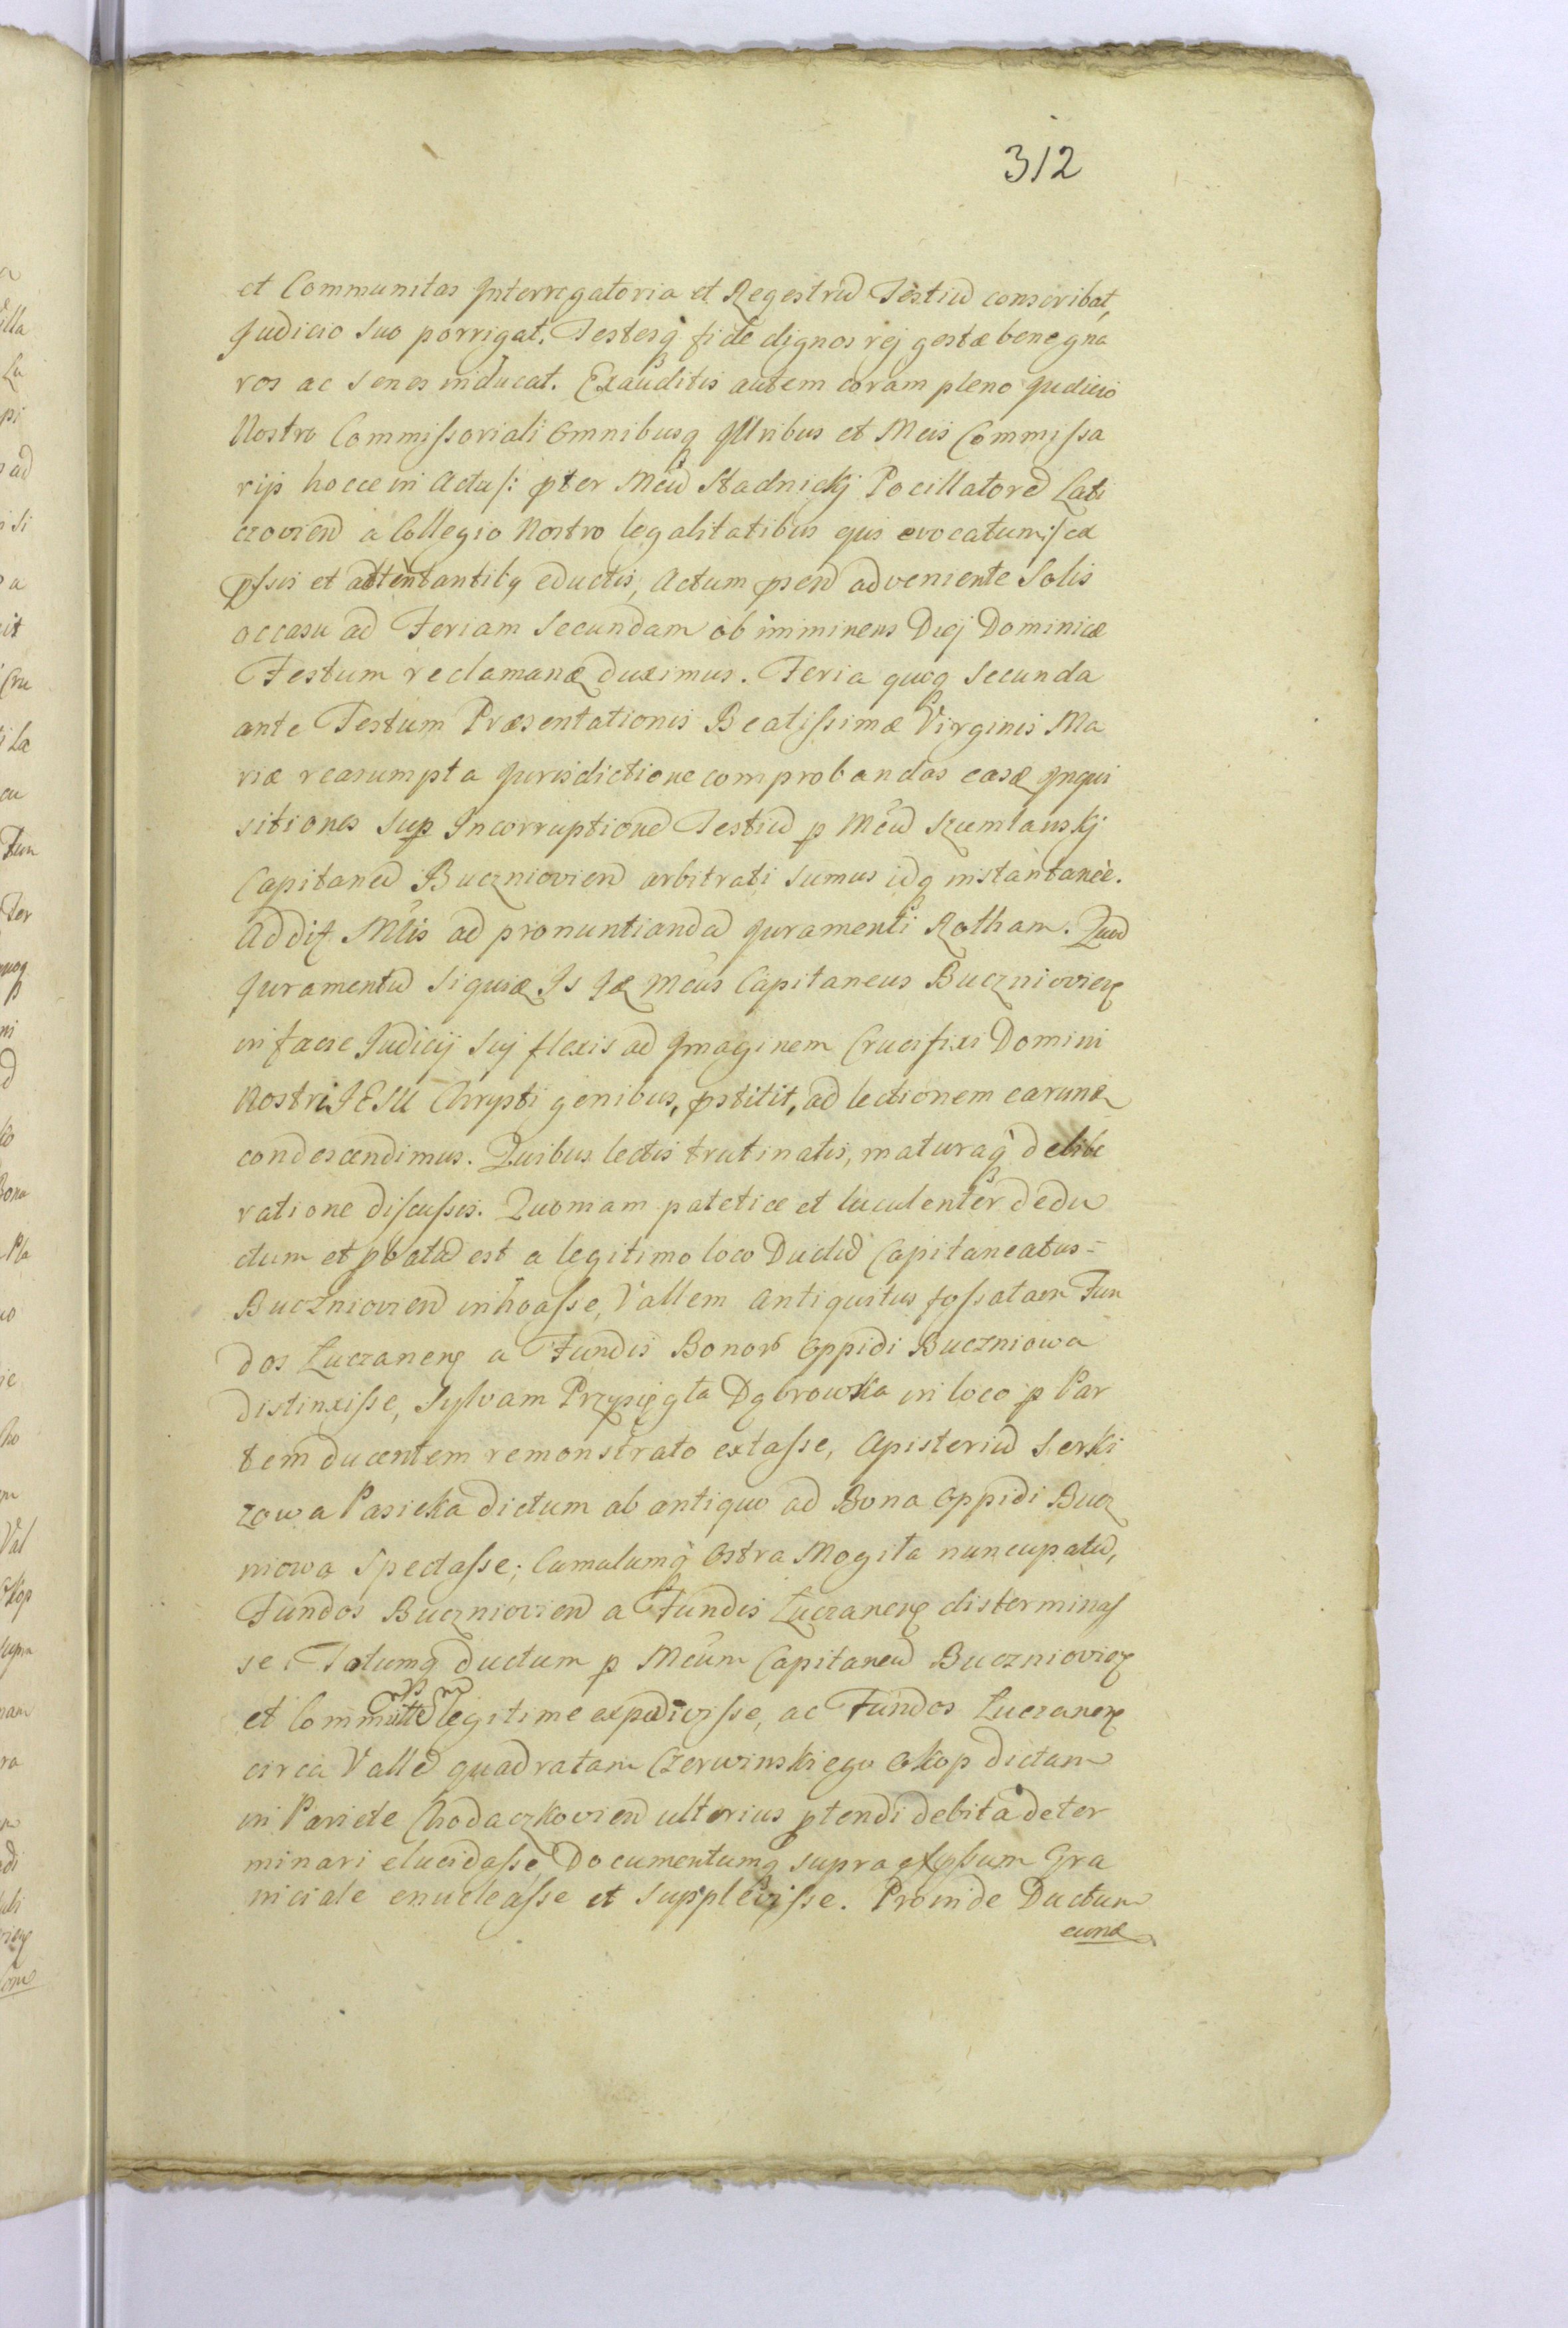 312
et Communitas Interrogatoria et Regestrũ Testiũ conscribat,
Judicio Suo porrigat. Testesq̃ fide dignos rej gestæ bene gna
ros ac senes inducat. Exauditis autem coram pleno Judicio
Nostro Commissoriali Omnibusq̃ Illribus et Mcis Commissa
rijs hocce in Actu /: pter Mcũ Stadnickj Pocillatorẽ Laty
czovien̄ a Collegio Nostro legalitatibus ejus evocatum :/ ex
pssis et attentantibq eductis, Actum psen̄ adveniente Solis
occasu ad Feriam Secundam ob imminens Diej Dominicæ
Festum reclamanđ duximus. Feria quoq̃ Secunda
ante Festum Præsentationis Beatissimæ Virginis Ma
riæ reasumpta Jurisdictione comprobandas easđ Inqui
sitiones Sup Incorruptionẽ Testiũ p Mcũ Szumlanskj
Capitaneũ Buczniovien̄ arbitrati sumus idq̃ instantanèe.
Addit Mtis ad pronuntiandã Juramenti Rotham. Quod
Juramentũ siquiđ Is Iđ Mcus Capitaneus Bucznioviens
in facie Judicij Suj flexis ad Imaginem Crucifixi Domini
Nostri JESU Chrysti genibus, pstitit, ad lectionem earunđ
condescendimus. Quibus lectis trutinatis, maturaq̃ delibe
ratione discussis. Quoniam patetice et luculenter dedu
ctum et pbatũ est a legitimo loco Ductũ Capitaneatus
Buczniovien̄ inhoasse, Vallem antiquitus fossatam Fun
dos Łuczanens a Fundis Bonor̃ Oppidi Buczniowa
distinxisse, Sylvam Przysięgła Dąbrowka in loco p Par
tem ducentem remonstrato extasse, Apisteriũ Serki
zowa Pasieka dictum ab antiquo ad Bona Oppidi Bucz
niowa Spectasse; Cumulumq̃ Ostra Mogiła nuncupatũ,
Fundos Buczniovien̄ a Fundis Łuczanens disterminas
se. Totumq̃ ductum p Mcum Capitaneũ Bucznioviens
et Commutte legitime expedivisse, ac Fundos Łuczanens
circa Vallẽ quadratam Czerwinskiego Okop dictam
in Pariete Chodaczkovien̄ ulterius ptendi debita deter
minari elucidasse, Documentumq̃ supra expssum Gra
niciale enucleasse et Supplevisse. Proinde Ductum
eunđ